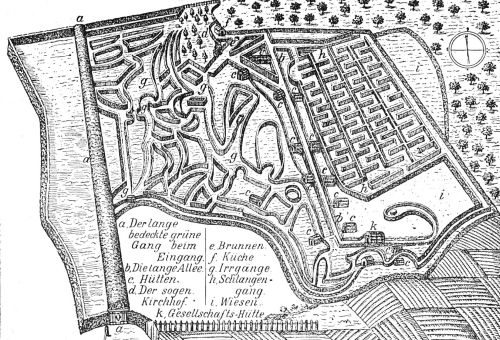 a. Der lange
bedeckte grüne
Gang beim
Eingang.
b. Die lange Allée.
c. Hütten.
d. Der sogen.
Kirchhof.
e. Brunnen.
f. Küche
g. Irrgange
h. Schlangen-
gang
i. Wiesen.
k. Gesellschafts-Hütte
a
a
a
g
g
g
c
c
c
b
c
k
i
i
h